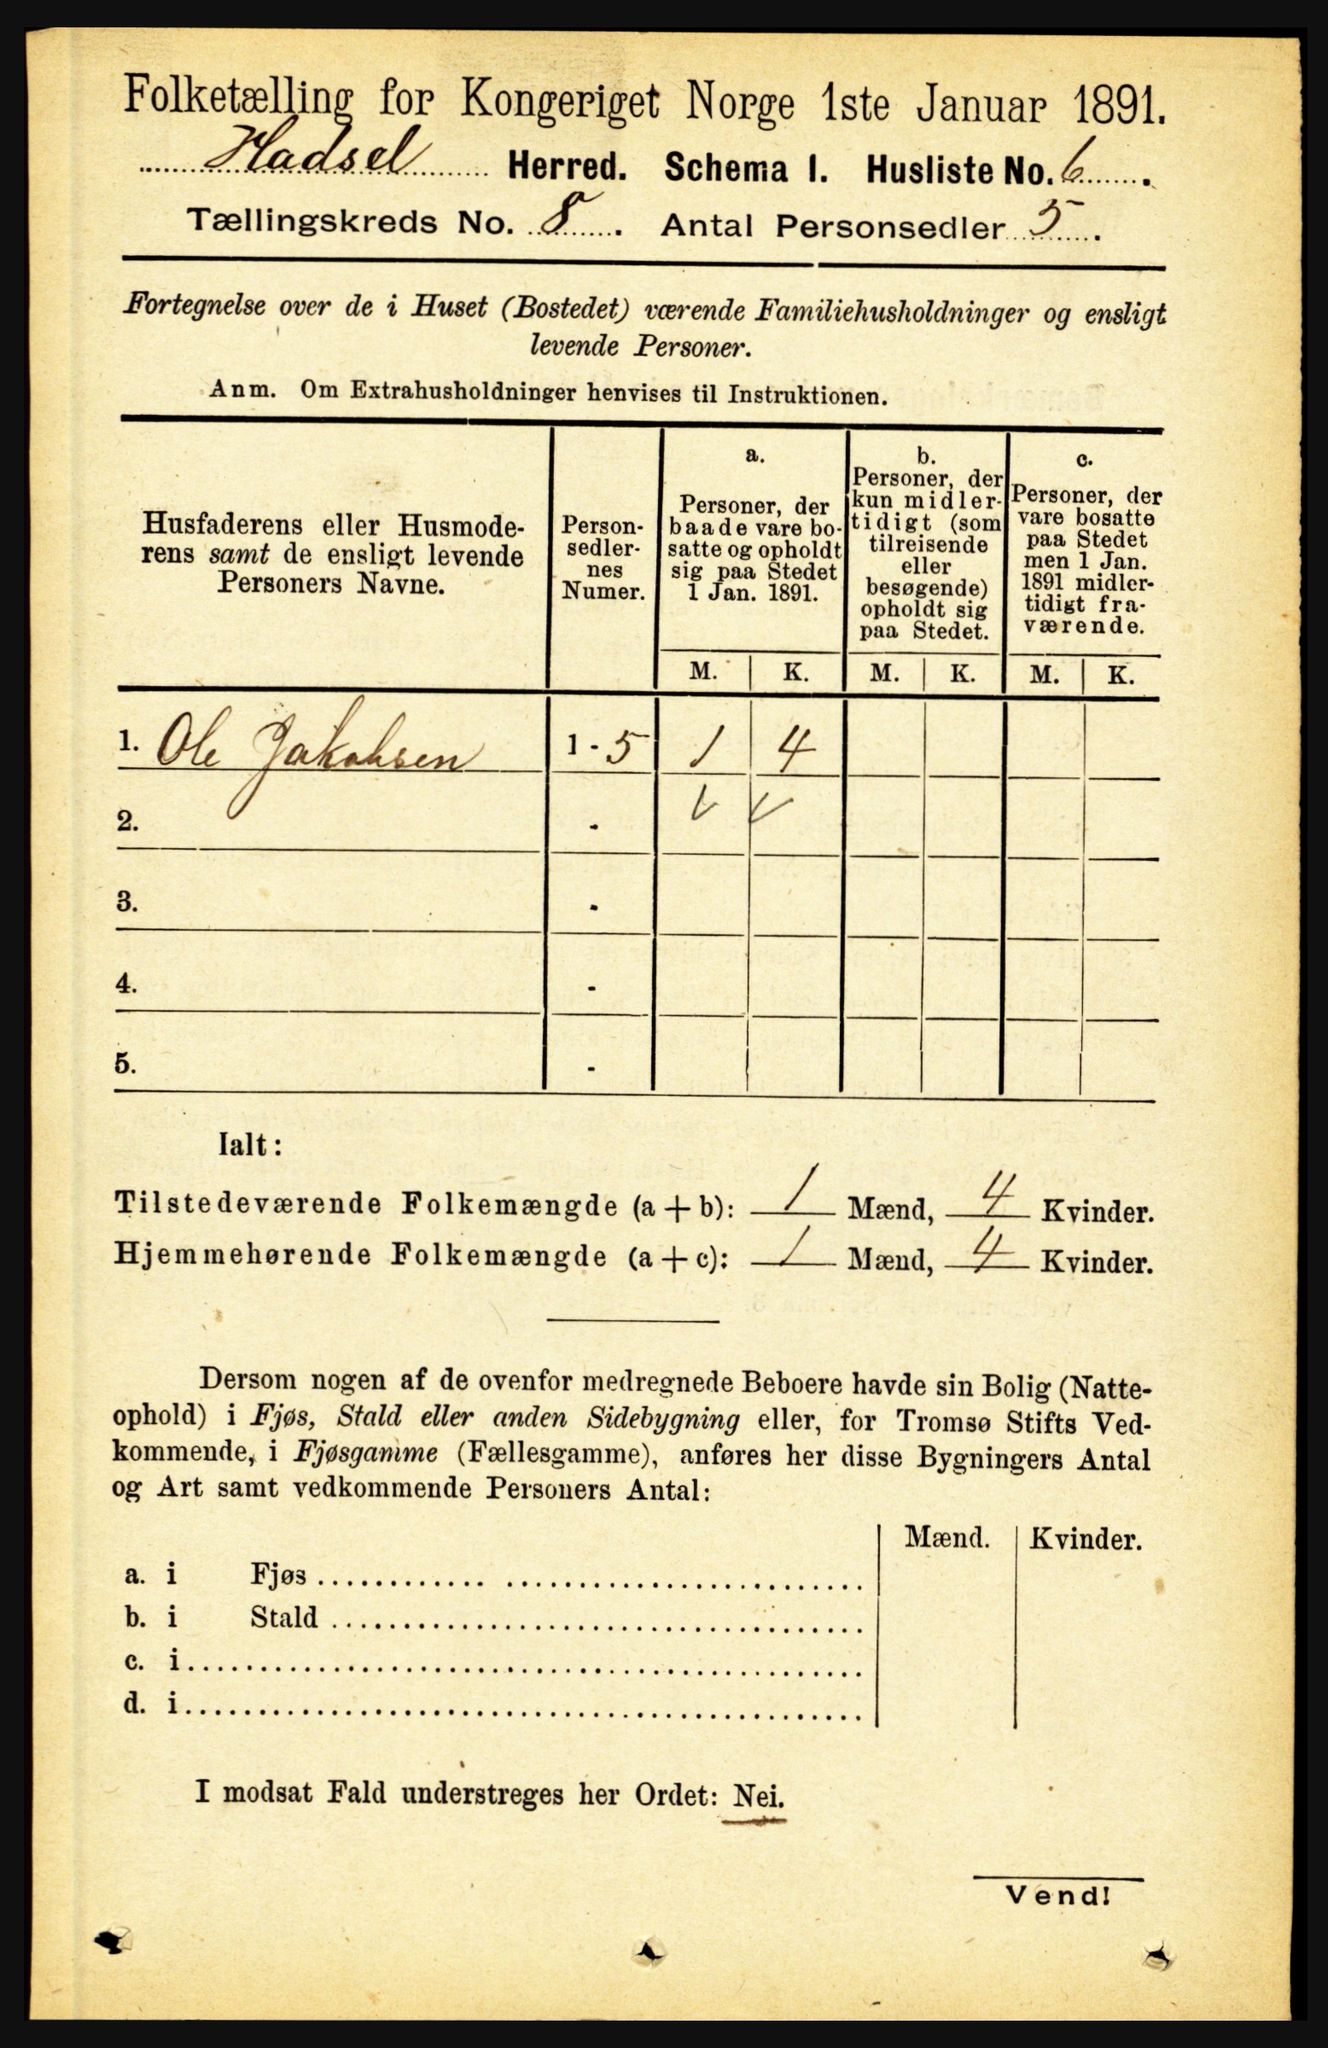 Folketælling for Kongeriget Norge 1ste Januar 1891.
Hadsel Herred. Schema I. Husliste No. 6.
Tællingskreds No. 8. Antal Personsedler 5.
Fortegnelse over de i Huset (Bostedet) værende Familiehusholdninger og ensligt
levende Personer.
Anm. Om Extrahusholdninger henvises til Instruktionen.
Husfaderens eller Husmode-
rens samt de ensligt levende
Personers Navne.
Person-
sedler-
nes
Numer.
a.
Personer, der
baade vare bo-
satte og opholdt
sig paa Stedet
1 Jan. 1891.
b.
Personer, der
kun midler-
tidigt (som
tilreisende
eller
besøgende)
opholdt sig
paa Stedet.
c.
Personer, der
vare bosatte
paa Stedet
men 1 Jan.
1891 midler-
tidigt fra-
værende.
M. K. M. K. M. K.
1. Ole Jakobsen 1 - 5 1 4
2. -
3. -
4. -
5. -
Ialt:
Tilstedeværende Folkemængde (a + b): 1 Mænd, 4 Kvinder.
Hjemmehørende Folkemængde (a + c): 1 Mænd, 4 Kvinder.
Dersom nogen af de ovenfor medregnede Beboere havde sin Bolig (Natte-
ophold) i Fjøs, Stald eller anden Sidebygning eller, for Tromsø Stifts Ved-
kommende, i Fjøsgamme (Fællesgamme), anføres her disse Bygningers Antal
og Art samt vedkommende Personers Antal:
Mænd. Kvinder.
a. i Fjøs
b. i Stald
c. i
d. i
I modsat Fald understreges her Ordet: Nei.
Vend!